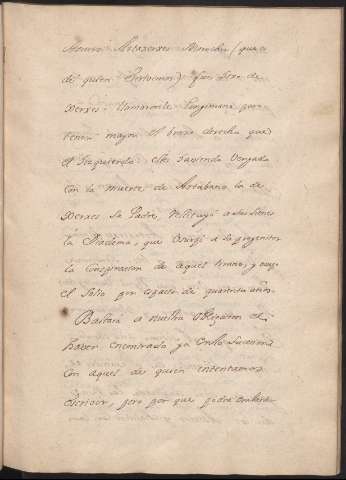 Artaxerxes Mnemon (que es
del quien tratamos) fue hijo de
Xerxes: llamaronle Longimano por
tener mayor el brazo derecho que
el Izquierdo: este haviendo Vengado
con la muerte de Artabano la de
Xerxes su Padre, restituyó a sus sienes
la Diadema, que à su progenitor
la Conspiracion de aquel tirano, y ocupó
el Solio por espacio de quarenta años.
Bastará a nuestra obligacion el
haver encontrado ya en la
con aquel de quien intentamos
escrivir, pero por que